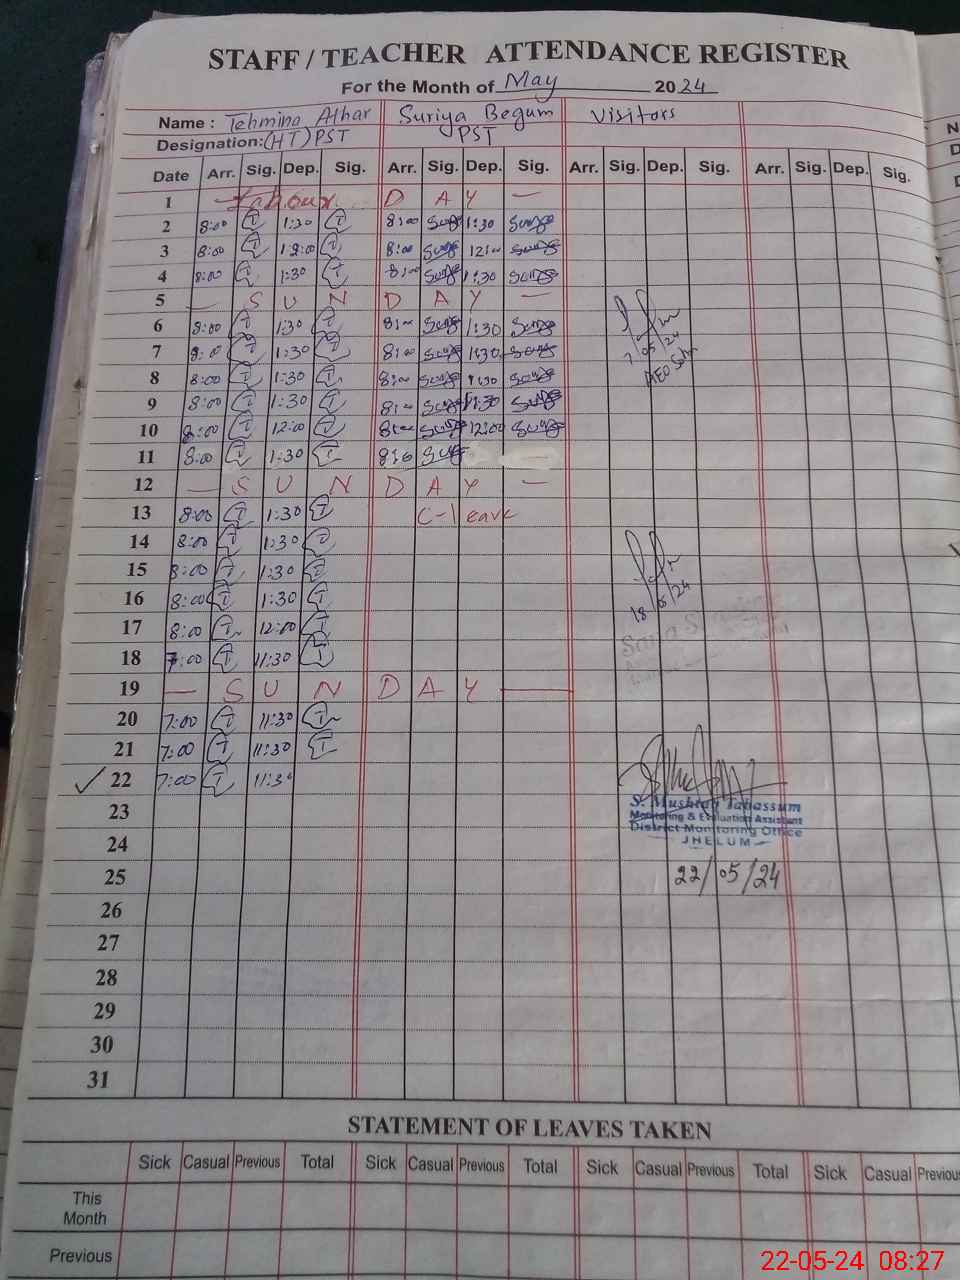 STAFF / TEACHER ATTENDANCE REGISTER
For the Month of May 2024
Name : Tehmina Athar Suriya Begum Visitors
Designation: (HT) PST PST
Date Arr. Sig. Dep. Sig. Arr. Sig. Dep. Sig. Arr. Sig. Dep. Sig. Arr. Sig. Dep. Sig.
1 Labour D A Y —
2 8:00 T 1:30 T 8:00 1:30
3 8:00 T 12:00 T 8:00 12:00
4 8:00 T 1:30 T 8:00 1:30
5 — S U N D A Y —
6 8:00 T 1:30 T 8:00 1:30
7 8:00 T 1:30 T 8:00 1:30
7/05/24
8 8:00 T 1:30 T 8:00 1:30
9 8:00 T 1:30 T 8:00 1:30
10 8:00 T 12:00 T 8:00 12:00
11 8:00 T 1:30 T
12 — S U N D A Y —
13 8:00 T 1:30 T C-leave
14 8:00 T 1:30 T
15 8:00 T 1:30 T
16 8:00 T 1:30 T
18/5/24
17 8:00 T 12:00 T
18 7:00 T 11:30 T
19 — S U N D A Y —
20 7:00 T 11:30 T
21 7:00 T 11:30 T
22 7:00 T 11:30
23
S. Mushtaq Tabassum
Monitoring & Evaluation Assistant
District Monitoring Office
JHELUM
24
25
22/05/24
26
27
28
29
30
31
STATEMENT OF LEAVES TAKEN
Sick Casual Previous Total Sick Casual Previous Total Sick Casual Previous Total Sick Casual Previous
This
Month
Previous
22-05-24 08:27